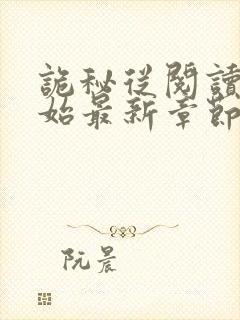 詭秘從閱讀
始最新章節
阮晨